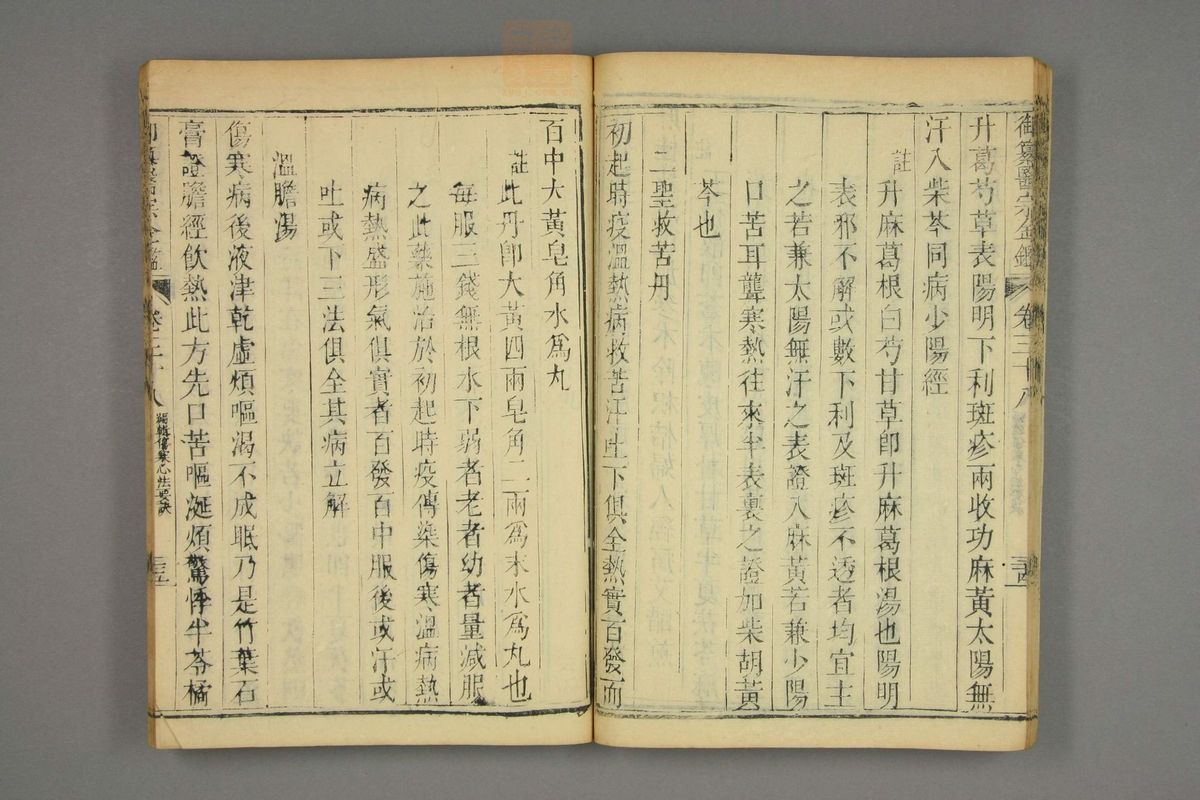 御纂醫宗金鑑 卷三十八
升葛芍草表陽明下利斑疹兩收功麻黃太陽無
汗入柴芩同病少陽經
註
升麻葛根白芍甘草卽升麻葛根湯也陽明
表邪不解或數下利及斑疹不透者均宜主
之若兼太陽無汗之表證入麻黃若兼少陽
口苦耳聾寒熱往來半表裏之證加柴胡黃
芩也
二聖救苦丹
初起時疫溫熱病救苦汗吐下俱全熱實百發而
百中大黃皂角水爲丸
註
此丹卽大黃四兩皂角二兩爲末水爲丸也
每服三錢無根水下弱者老者幼者量減服
之此藥施治於初起時疫傳染傷寒溫病熱
病熱盛形氣俱實者百發百中服後或汗或
吐或下三法俱全其病立解
溫膽湯
傷寒病後液津乾虛煩嘔渴不成眠乃是竹葉石
膏證膽經飲熱此方先口苦嘔涎煩驚悸半苓橘
卷三十八 編輯傷寒心法要訣